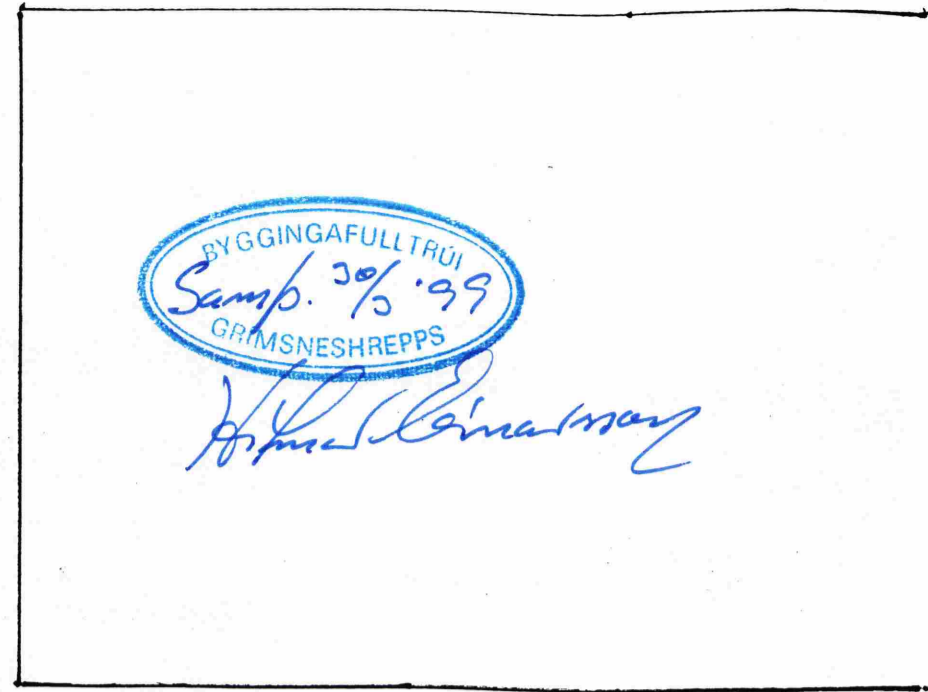 BYGGINGAFULLTRÚI
Samþ. 30/3 '99
GRÍMSNESHREPPS
Hilmar Einarsson